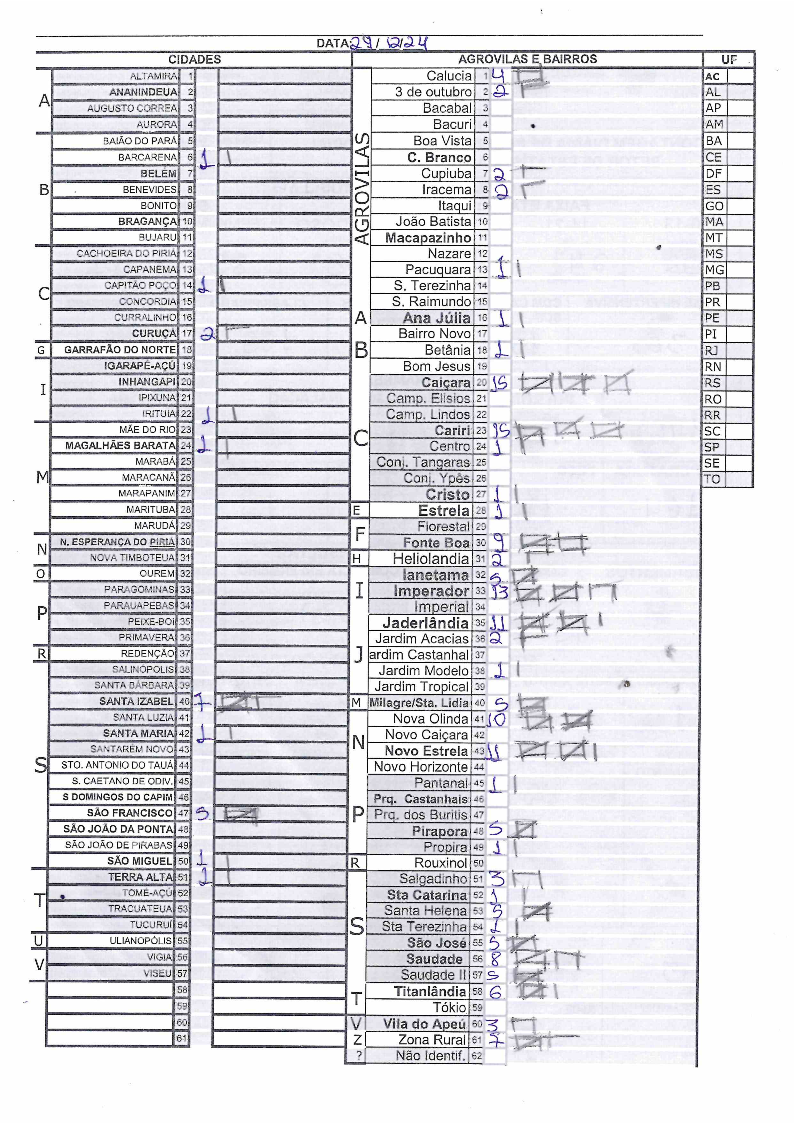 DATA: 29/12/24
CIDADES AGROVILAS E BAIRROS UF
A
ALTAMIRA 1
ANANINDEUA 2
AUGUSTO CORREA 3
AURORA 4
B
BAIÃO DO PARÁ 5
BARCARENA 6 1
BELÉM 7
BENEVIDES 8
BONITO 9
BRAGANÇA 10
BUJARU 11
C
CACHOEIRA DO PIRIA 12
CAPANEMA 13
CAPITÃO POÇO 14 1
CONCORDIA 15
CURRALINHO 16
CURUÇA 17 2
G GARRAFÃO DO NORTE 18
I
IGARAPÉ-AÇÚ 19
INHANGAPI 20
IPIXUNA 21
IRITUIA 22 1
M
MÃE DO RIO 23
MAGALHÃES BARATA 24 1
MARABÁ 25
MARACANÃ 26
MARAPANIM 27
MARITUBA 28
MARUDÁ 29
N
N. ESPERANÇA DO PIRIA 30
NOVA TIMBOTEUA 31
O OUREM 32
P
PARAGOMINAS 33
PARAUAPEBAS 34
PEIXE-BOI 35
PRIMAVERA 36
R REDENÇÃO 37
S
SALINOPOLIS 38
SANTA BÁRBARA 39
SANTA IZABEL 40 7
SANTA LUZIA 41
SANTA MARIA 42 1
SANTARÉM NOVO 43
STO. ANTONIO DO TAUÁ 44
S. CAETANO DE ODIV. 45
S DOMINGOS DO CAPIM 46
SÃO FRANCISCO 47 5
SÃO JOÃO DA PONTA 48
SÃO JOÃO DE PIRABAS 49
SÃO MIGUEL 50 1
T
TERRA ALTA 51 1
TOMÉ-AÇÚ 52
TRACUATEUA 53
TUCURUÍ 54
U ULIANOPÓLIS 55
V
VIGIA 56
VISEU 57
58
59
60
61
AGROVILAS
Calucia 1 4
3 de outubro 2 2
Bacabal 3
Bacuri 4
Boa Vista 5
C. Branco 6
Cupiuba 7 2
Iracema 8 2
Itaqui 9
João Batista 10
Macapazinho 11
Nazare 12
Pacuquara 13 1
S. Terezinha 14
S. Raimundo 15
A Ana Júlia 16 1
B
Bairro Novo 17
Betânia 18 1
Bom Jesus 19
C
Caiçara 20 15
Camp. Elisios 21
Camp. Lindos 22
Cariri 23 15
Centro 24 1
Conj. Tangaras 25
Conj. Ypês 26
Cristo 27 1
E Estrela 28 1
F
Florestal 29
Fonte Boa 30 9
H Heliolandia 31 2
I
Ianetama 32 5
Imperador 33 13
Imperial 34
J
Jaderlândia 35 11
Jardim Acacias 36 2
ardim Castanhal 37
Jardim Modelo 38 1
Jardim Tropical 39
M Milagre/Sta. Lidia 40 5
N
Nova Olinda 41 10
Novo Caiçara 42
Novo Estrela 43 11
Novo Horizonte 44
P
Pantanal 45 1
Prq. Castanhais 46
Prq. dos Buritis 47
Pirapora 48 5
Propira 49 1
R Rouxinol 50
S
Salgadinho 51 3
Sta Catarina 52 1
Santa Helena 53 5
Sta Terezinha 54 1
São José 55 5
Saudade 56 8
Saudade II 57 5
T
Titanlândia 58 6
Tókio 59
V Vila do Apeú 60 3
Z Zona Rural 61 7
? Não Identif. 62
AC
AL
AP
AM
BA
CE
DF
ES
GO
MA
MT
MS
MG
PB
PR
PE
PI
RJ
RN
RS
RO
RR
SC
SP
SE
TO